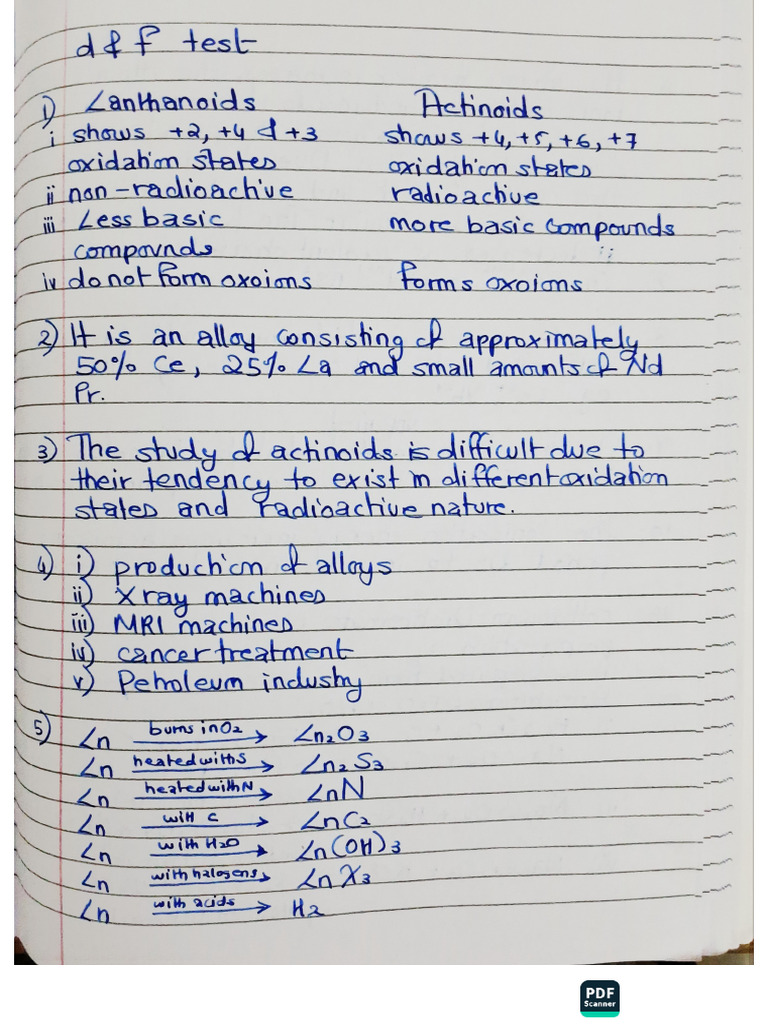 d & f test
1) Lanthanoids Actinoids
i shows +2, +4 & +3 shows +4, +5, +6, +7
oxidation states oxidation states
ii non-radioactive radioactive
iii Less basic more basic compounds
compounds
iv do not form oxoions forms oxoions
2) It is an alloy consisting of approximately
50% Ce, 25% La and small amounts of Nd
Pr.
3) The study of actinoids is difficult due to
their tendency to exist in different oxidation
states and radioactive nature.
4) i) production of alloys
ii) X ray machines
iii) MRI machines
iv) cancer treatment
v) Petroleum industry
5) Ln burns in O2 → Ln2O3
Ln heated with S → Ln2S3
Ln heated with N → LnN
Ln with C → LnC2
Ln with H2O → Ln(OH)3
Ln with halogens → LnX3
Ln with acids → H2
PDF
Scanner